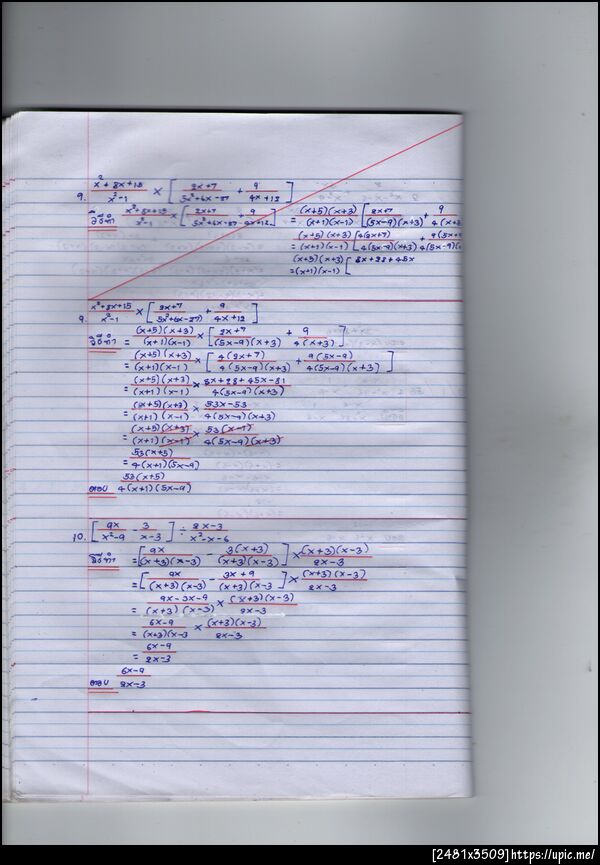 9. x²+8x+15/x²-1 × [2x+7/5x²+6x-27 + 9/4x+12]
วิธีทำ x²+8x+15/x²-1 × [2x+7/5x²+6x-27 + 9/4x+12] = (x+5)(x+3)/(x+1)(x-1) [2x+7/(5x-9)(x+3) + 9/4(x+3
= (x+5)(x+3)/(x+1)(x-1) [4(2x+7)/4(5x-9)(x+3) + 9(5x-9/4(5x-9)(
= (x+5)(x+3)/(x+1)(x-1) [8x+28+45x
9. x²+8x+15/x²-1 × [2x+7/5x²+6x-27) + 9/4x+12]
วิธีทำ = (x+5)(x+3)/(x+1)(x-1) × [2x+7/(5x-9)(x+3) + 9/4(x+3)]
= (x+5)(x+3)/(x+1)(x-1) × [4(2x+7)/4(5x-9)(x+3) + 9(5x-9)/4(5x-9)(x+3)]
= (x+5)(x+3)/(x+1)(x-1) × 8x+28+45x-81/4(5x-9)(x+3)
= (x+5)(x+3)/(x+1)(x-1) × 53x-53/4(5x-9)(x+3)
= (x+5)(x+3)/(x+1)(x-1) × 53(x-1)/4(5x-9)(x+3)
= 53(x+5)/4(x+1)(5x-9)
ตอบ 53(x+5)/4(x+1)(5x-9)
10. [9x/x²-9 - 3/x-3] ÷ 2x-3/x²-x-6
วิธีทำ = [9x/(x+3)(x-3) - 3(x+3)/(x+3)(x-3)] × (x+3)(x-3)/2x-3
= [9x/(x+3)(x-3) - 3x+9/(x+3)(x-3] × (x+3)(x-3)/2x-3
= 9x-3x-9/(x+3)(x-3) × (x+3)(x-3)/2x-3
= 6x-9/(x+3)(x-3 × (x+3)(x-3)/2x-3
= 6x-9/2x-3
ตอบ 6x-9/2x-3
[2481x3509]https://upic.me/